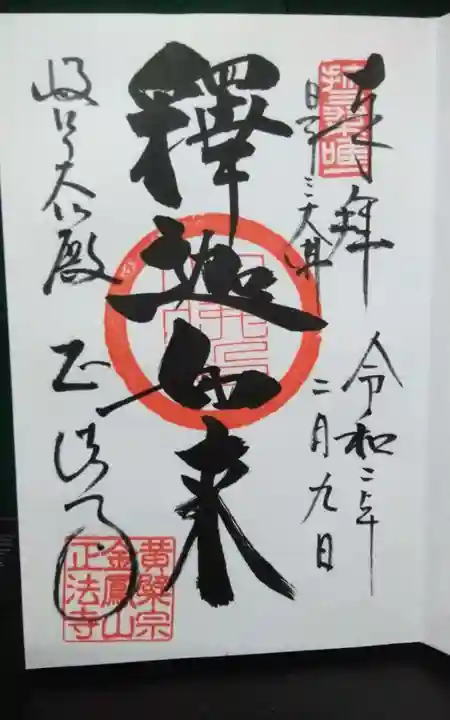 奉拝
令和二年
二月九日
日本三大佛
釋迦如来
岐阜大仏殿
正法寺
黄檗宗
金鳳山
正法寺